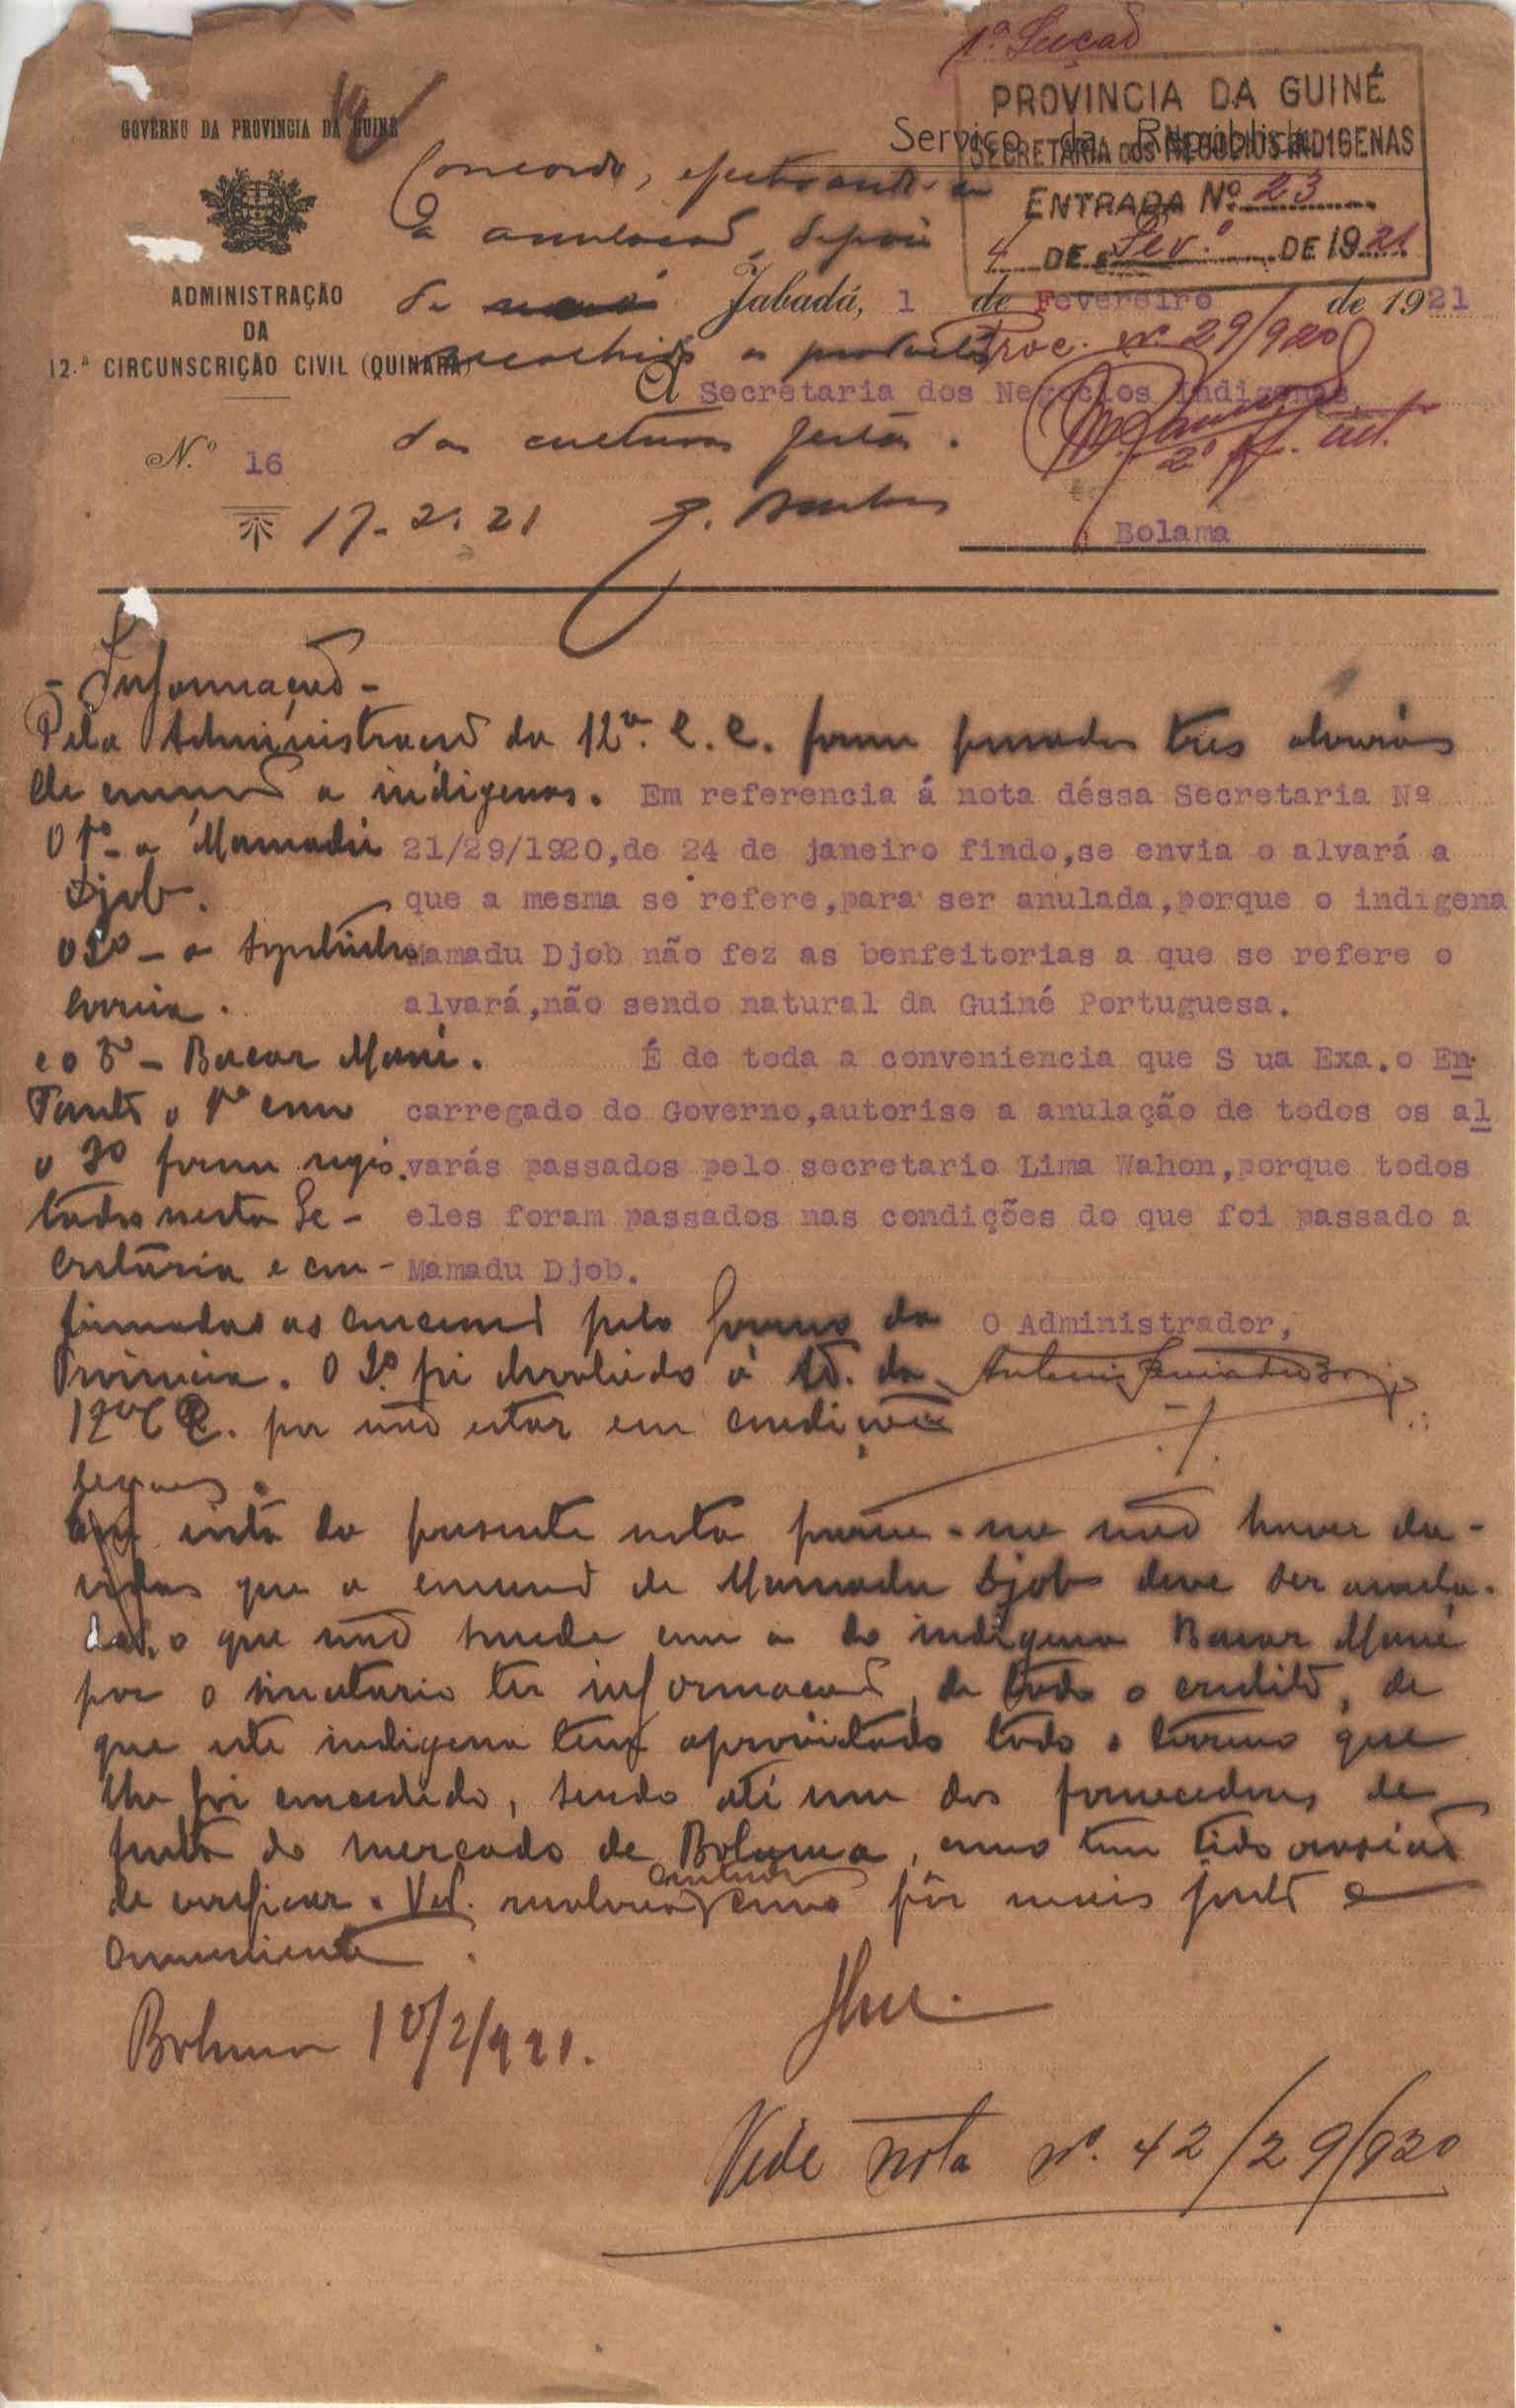 1ª Secção
GOVÊRNO DA PROVÍNCIA DA GUINÉ
Serviço da República
PROVINCIA DA GUINÉ
SECRETARIA DOS NEGOCIOS INDIGENAS
ENTRADA Nº 23
4 DE Fev.º DE 1921
ADMINISTRAÇÃO
DA
12.ª CIRCUNSCRIÇÃO CIVIL (QUINARA)
N.º 16
Concordo, efectuando-se
a anulação, depois
de
recolhidos os productos
das culturas feitas.
17-2.21
Jabadá, 1 de Fevereiro de 1921
Proc. nº 29/920
Á Secretaria dos Negocios Indigenas
2º of. int.
Bolama
- Informação -
Pela Administração da 12ª. C. C. foram passados tres alvarás
de concessão a indigenas.
O 1º - a Mamadú
Djob.
o 2º - a Agostinho
Correia.
e o 3º - Bacar Mané.
Tanto o 1º como
o 3º foram regis-
tados nesta Se-
cretaria e con-
firmadas as concessões pelo Governo da
Provincia. O 2º foi devolvido á Ad. da
12ª C. C. por não estar em condições
legaes.
Em referencia á nota déssa Secretaria Nº
21/29/1920,de 24 de janeiro findo,se envia o alvará a
que a mesma se refere,para ser anulada,porque o indigena
Mamadu Djob não fez as benfeitorias a que se refere o
alvará,não sendo natural da Guiné Portuguesa.
É de toda a conveniencia que S ua Exa.o En
carregado do Governo,autorise a anulação de todos os al
varás passados pelo secretario Lima Wahon,porque todos
eles foram passados nas condições do que foi passado a
Mamadu Djob.
O Administrador,
vista da presente nota parece-me não haver du-
vidas que a concessão de Mamadu Djob deve ser anula-
da, o que não sucede com a do indigena Bacar Mané
por o signatario ter informação, de todo o credito, de
que este indigena tem aproveitado todo o terreno que
lhe foi concedido, sendo até um dos fornecedores de
fruta do mercado de Bolama, como tem tido ocasião
de verificar. V. Exª. resolverá como fôr mais justo e
conveniente.
Bolama 10/2/921.
Vide nota nº. 42/29/920